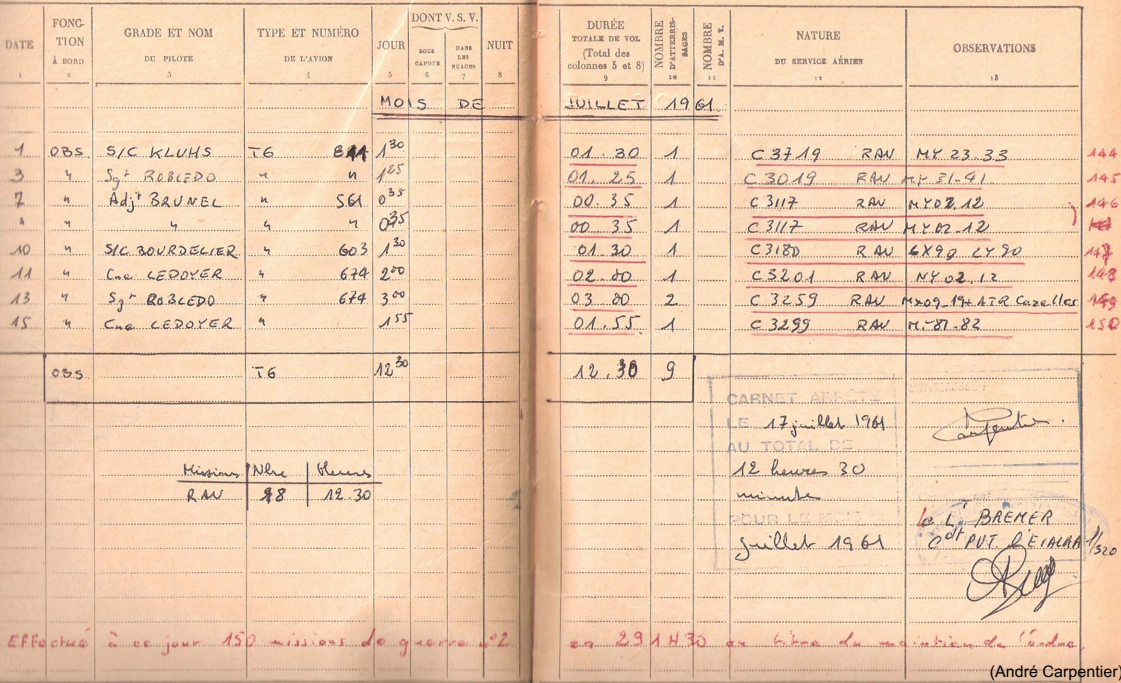 DATE FONCTION À BORD GRADE ET NOM DU PILOTE TYPE ET NUMÉRO DE L'AVION JOUR DONT V. S. V. SOUS CAPOTE DANS LES NUAGES NUIT DURÉE TOTALE DE VOL (Total des colonnes 5 et 8) NOMBRE D'ATTERRISSAGES NOMBRE D'A. M. V. NATURE DU SERVICE AÉRIEN OBSERVATIONS
1 2 3 4 5 6 7 8 9 10 11 12 13
MOIS DE JUILLET 1961
1 OBS S/C KLUHS T6 1 30 01.30 1 C3719 RAV MY 23.33 144
3 " Sgt ROBLEDO " " 1 25 01.25 1 C3019 RAV MY 31-41 145
7 " Adjt BRUNEL " 561 0 35 00.35 1 C3117 RAV MY02.12 146
" " " " " 0 35 00 35 1 C3117 RAV MY02-12
10 " S/C BOURDELIER " 603 1 30 01.30 1 C3180 RAV 6X90 LY90
11 " Cne LEDOYER " 674 2 00 02.00 1 C3201 RAV NY 02.12
13 " Sgt ROBLEDO " 674 3 00 03.00 2 C3259 RAV ATR Cazelles
15 " Cne LEDOYER " 1 55 01.55 1 C3299 RAV 81-82 150
OBS T6 12 30 12.30 9
CARNET ARRÊTÉ
LE 17 juillet 1961
Carpentier
AU TOTAL DE
12 heures 30
minutes
POUR LE MOIS
juillet 1961
Missions Nbre Heures
RAV 8 12.30
Le Lt BREMER
Cdt PVT. L'EIALRA 1/320
Effectué à ce jour 150 missions de guerre n°2 en 291H30 au titre du maintien de l'ordre.
(André Carpentier)